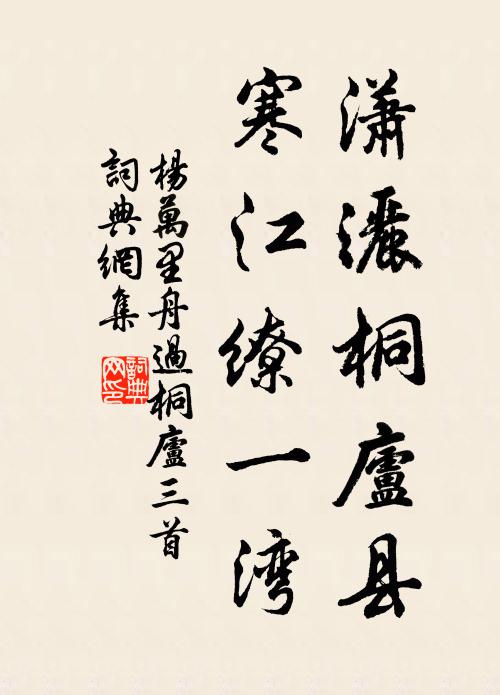 瀟灑桐廬县
寒江繚一湾
楊萬里舟過桐廬三首
詞典網集
詞典网印